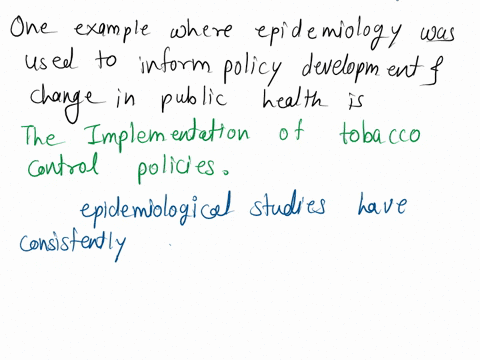 One example where epidemiology was
used to inform policy development &
change in public health is
The Implementation of tobacco
control policies.
epidemiological studies have
consistently